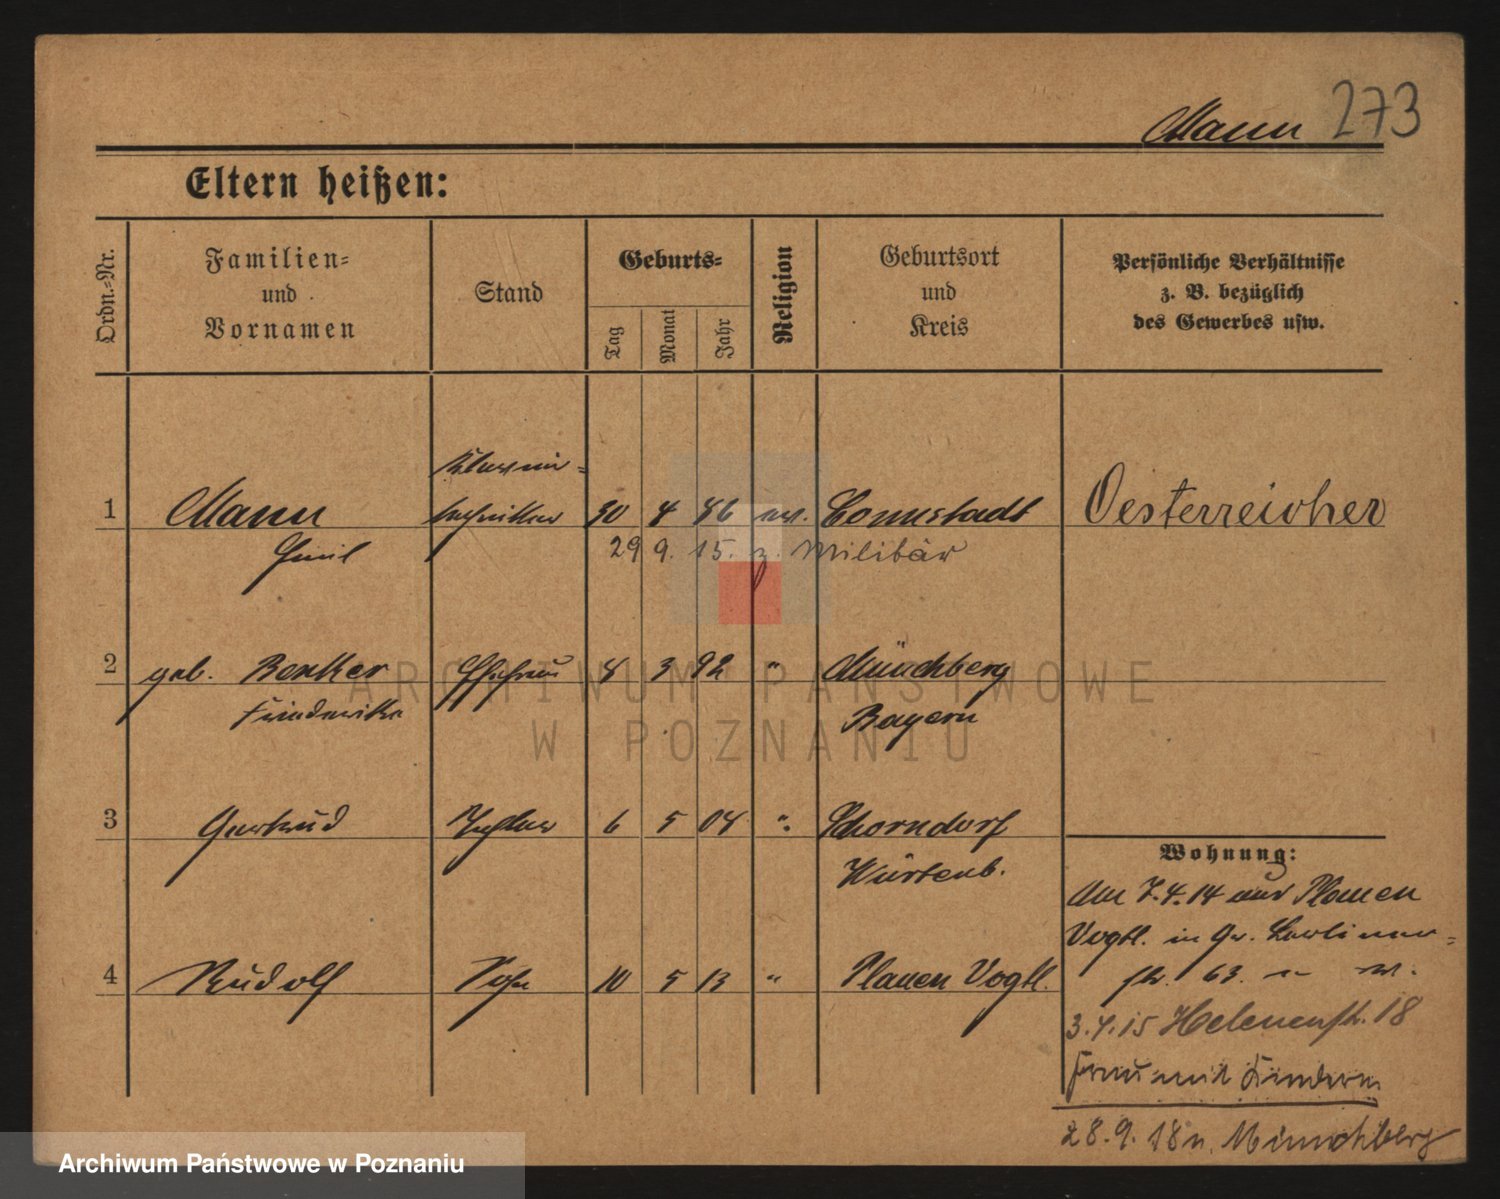 Mann 273
Eltern heißen:
Ordn.=Nr.
Familien=
und
Vornamen
Stand
Geburts=
Tag
Monat
Jahr
Religion
Geburtsort
und
Kreis
Persönliche Verhältnisse
z. B. bezüglich
des Gewerbes usw.
1 Mann techniker 30 4 86 ev. Connstadt Oesterreicher
Emil 29 9. 15. z. Militär
2 geb. Benker Ehefrau 8 3 92 " Münchberg
Friederike Bayern
3 Gertrud Tochter 6 5 08 " Schorndorf
Würtenb.
4 Rudolf Sohn 10 5 13 " Plauen Vogtl.
Wohnung:
Am 7.4.14 aus Plauen
Vogtl. in Gr. Berliner=
str. 63.
3.4.15 Helenenstr. 18
Frau mit Kindern
28.9.18 n. Münchberg
ARCHIWUM PAŃSTWOWE
W POZNANIU
Archiwum Państwowe w Poznaniu